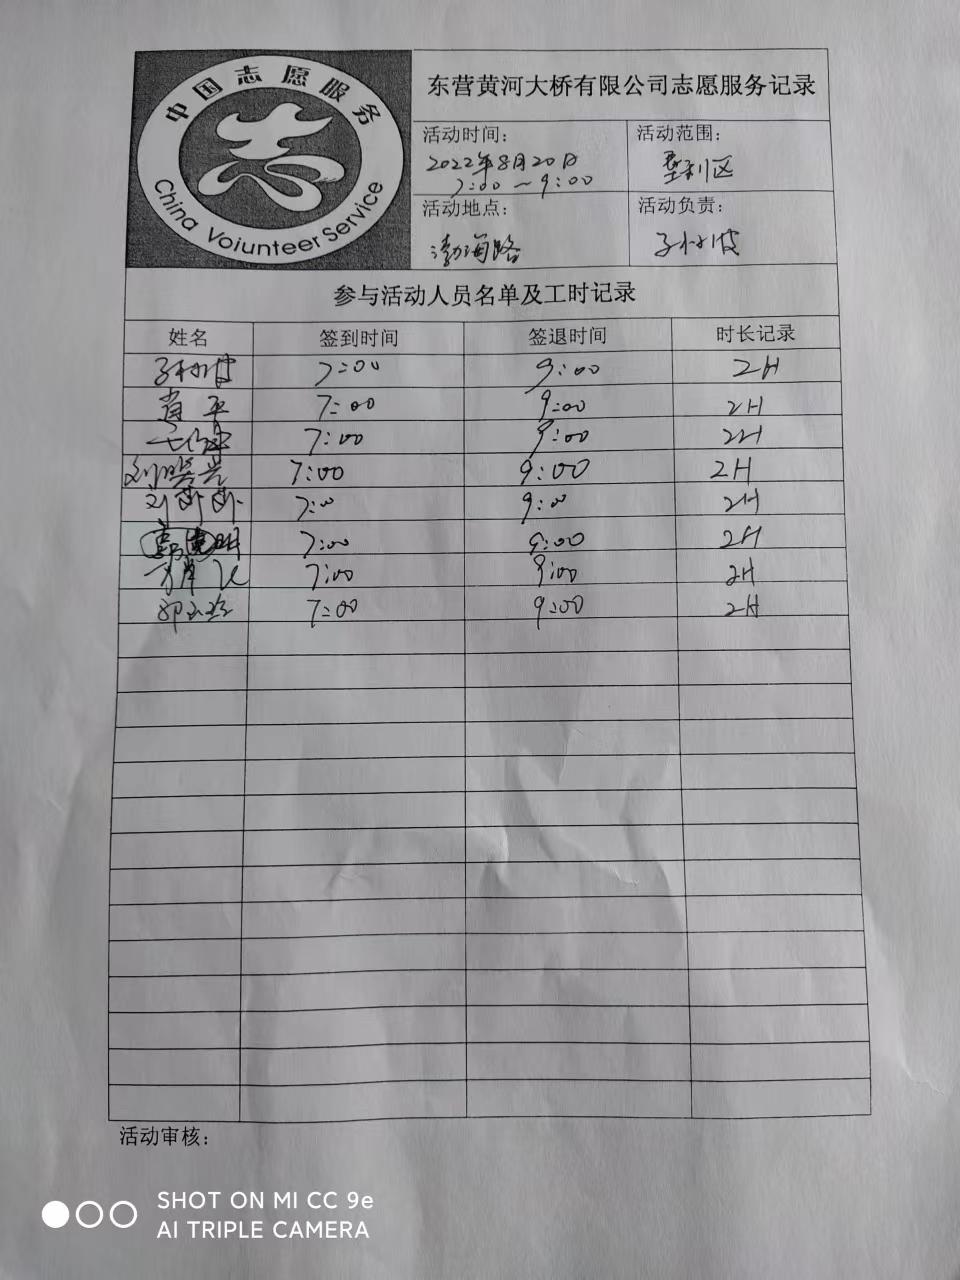 中国志愿服务
China Voiunteer Service
东营黄河大桥有限公司志愿服务记录
活动时间：
2022年8月20日
7:00～9:00
活动范围：
垦利区
活动地点：
渤海路
活动负责：
参与活动人员名单及工时记录
姓名 签到时间 签退时间 时长记录
7:00 9:00 2H
肖平 7:00 9:00 2H
7:00 9:00 2H
刘晓光 7:00 9:00 2H
7:00 9:00 2H
7:00 9:00 2H
7:00 9:00 2H
7:00 9:00 2H
活动审核：
SHOT ON MI CC 9e
AI TRIPLE CAMERA